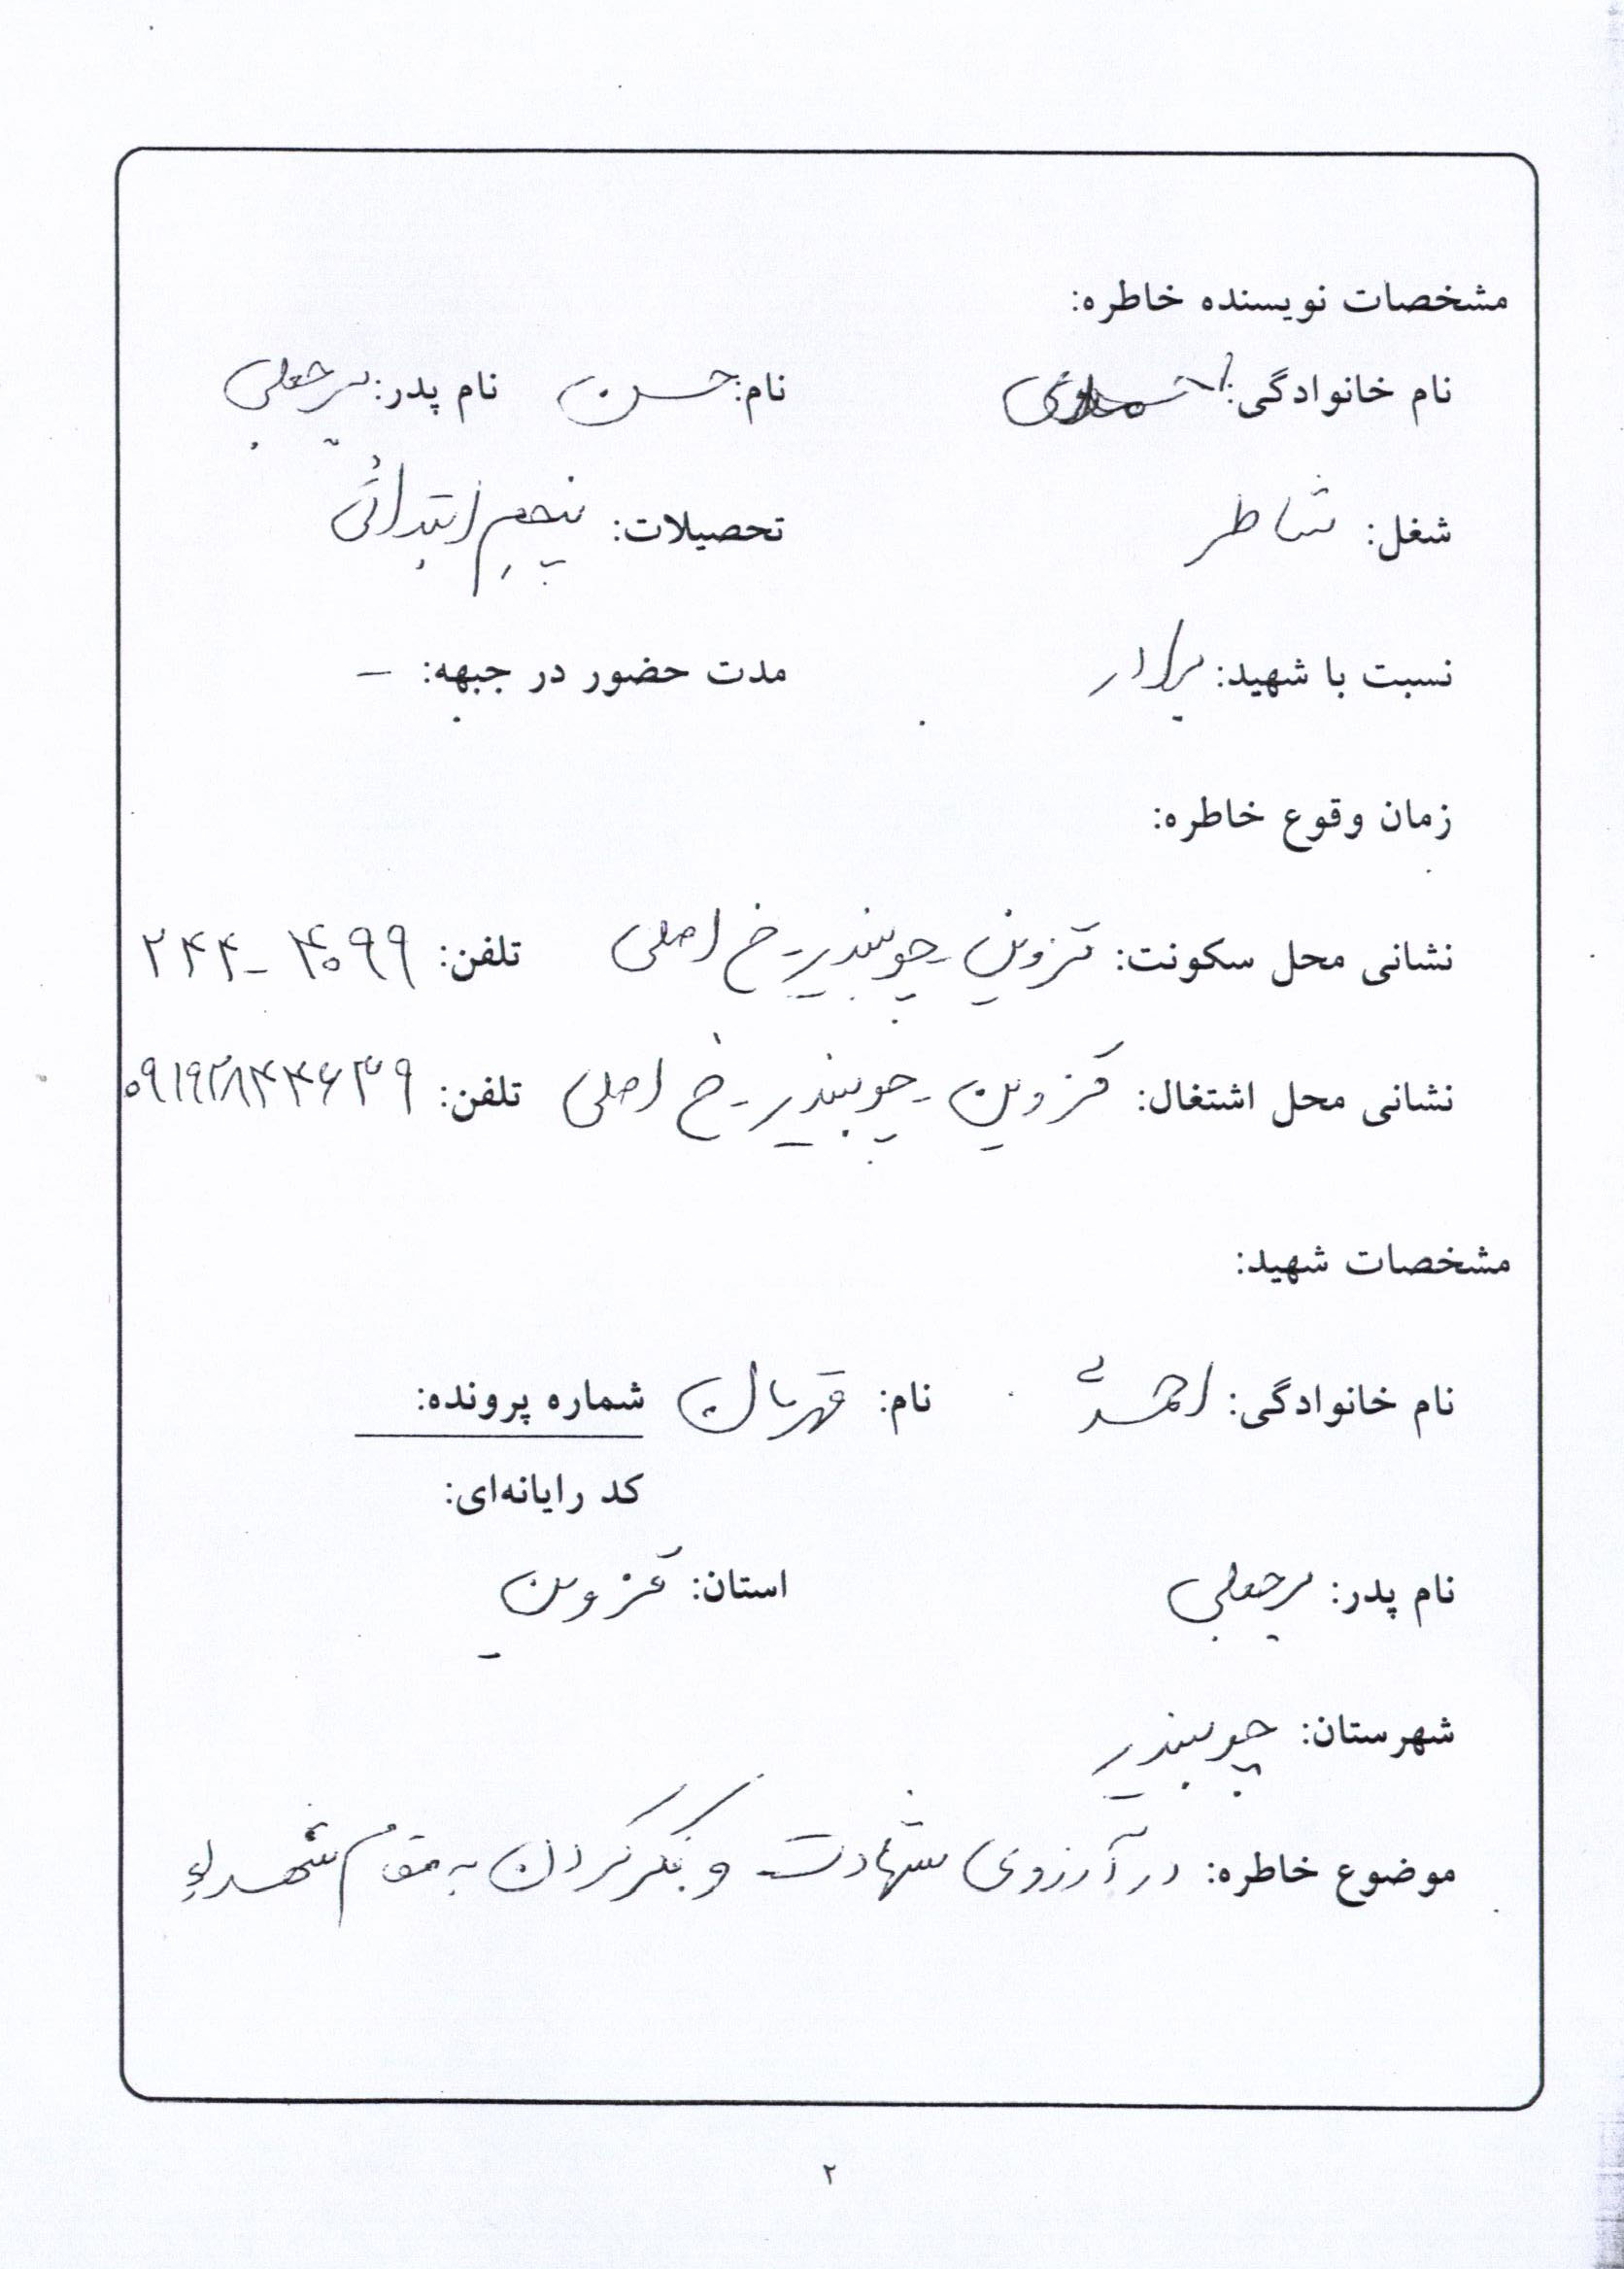 مشخصات نویسنده خاطره:
نام خانوادگی: نام: حسن نام پدر: برجعلی
شغل: شاطر تحصیلات: پنجم ابتدائی
نسبت با شهید: برادر مدت حضور در جبهه: -
زمان وقوع خاطره:
نشانی محل سکونت: قزوین - چوبیندر - خ اصلی تلفن: ۲۴۴-۴۰۹۹
نشانی محل اشتغال: قزوین - چوبیندر - خ اصلی تلفن: ۰۹۱۹۲۸۴۴۶۳۹
مشخصات شهید:
نام خانوادگی: احمدی نام: قهرمان شماره پرونده:
کد رایانه‌ای:
نام پدر: برجعلی استان: قزوین
شهرستان: چوبیندر
موضوع خاطره: در آرزوی شهادت و فکر کردن به مقام شهداء
۲